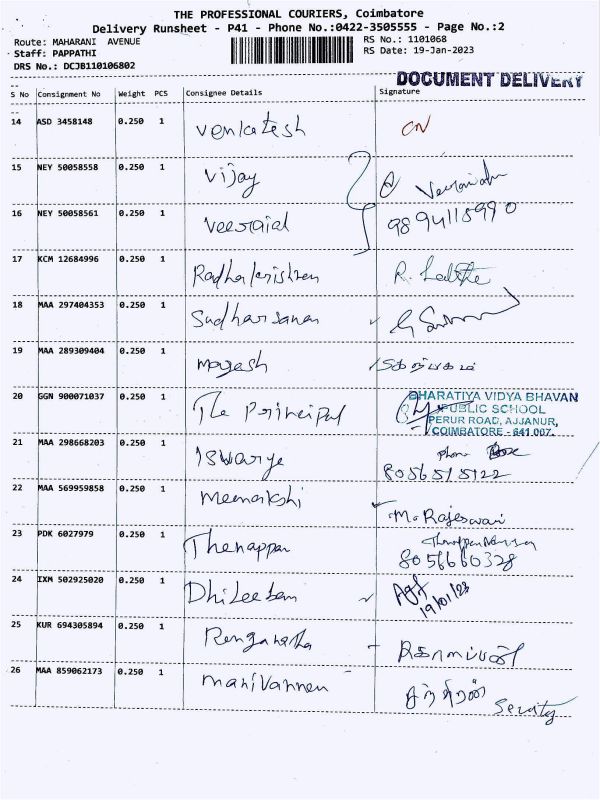 THE PROFESSIONAL COURIERS, Coimbatore
Delivery Runsheet - P41 - Phone No.:0422-3505555 - Page No.:2
Route: MAHARANI AVENUE
RS No.: 1101068
Staff: PAPPATHI
RS Date: 19-Jan-2023
DRS No.: DCJB110106802
DOCUMENT DELIVERY
S No Consignment No Weight PCS Consignee Details Signature
14 ASD 3458148 0.250 1 Venkatesh CN
15 NEY 50058558 0.250 1 Vijay
16 NEY 50058561 0.250 1 9894118990
17 KCM 12684996 0.250 1 Radhakrishnan R.
18 MAA 297404353 0.250 1 Sudharsanan G
19 MAA 289309404 0.250 1 Magesh
20 GGN 900071037 0.250 1 The Principal
BHARATIYA VIDYA BHAVAN
PUBLIC SCHOOL
PERUR ROAD, AJJANUR,
COIMBATORE - 641 007.
21 MAA 298668203 0.250 1 Iswarya Phone
8056515122
22 MAA 569959858 0.250 1 Meenakshi M. Rajeswari
23 PDK 6027979 0.250 1 Thenappan
8056660328
24 IXM 502925020 0.250 1 19/01/23
25 KUR 694305894 0.250 1
26 MAA 859062173 0.250 1 Manivannan